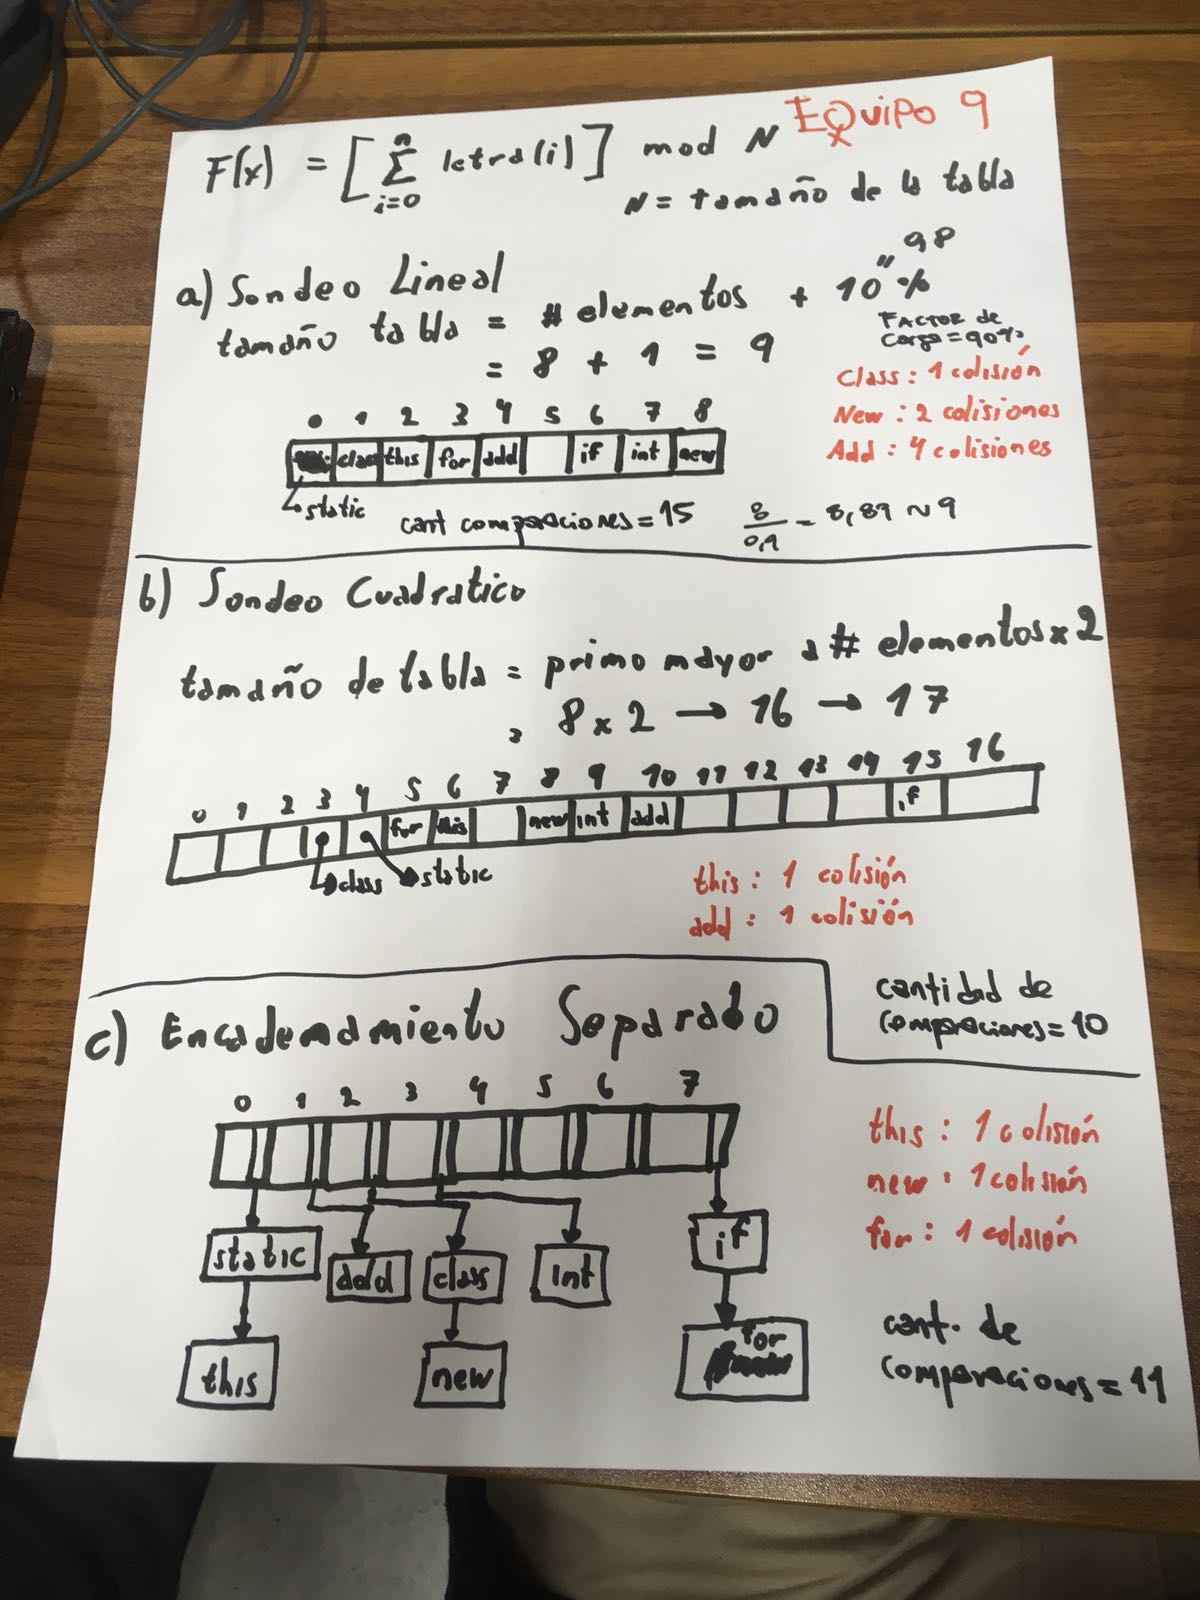 EQUIPO 9
F(x) = [ Σ letra(i) ] mod N
n
i=0
N = tamaño de la tabla
a) Sondeo Lineal
tamaño tabla = # elementos + 10%
" 98
= 8 + 1 = 9
FACTOR de
carga = 90%
Class : 1 colisión
New : 2 colisiones
Add : 4 colisiones
0 1 2 3 4 5 6 7 8
class this for add if int new
static
cant comparaciones = 15
8/0,9 = 8,89 ~ 9
b) Sondeo Cuadratico
tamaño de tabla = primo mayor a # elementos x 2
= 8 x 2 → 16 → 17
0 1 2 3 4 5 6 7 8 9 10 11 12 13 14 15 16
for this new int add if
class static
this : 1 colisión
add : 1 colisión
cantidad de
comparaciones = 10
c) Encadenamiento Separado
0 1 2 3 4 5 6 7
this : 1 colisión
new : 1 colisión
for : 1 colisión
static add class int if
this new for
cant. de
comparaciones = 11